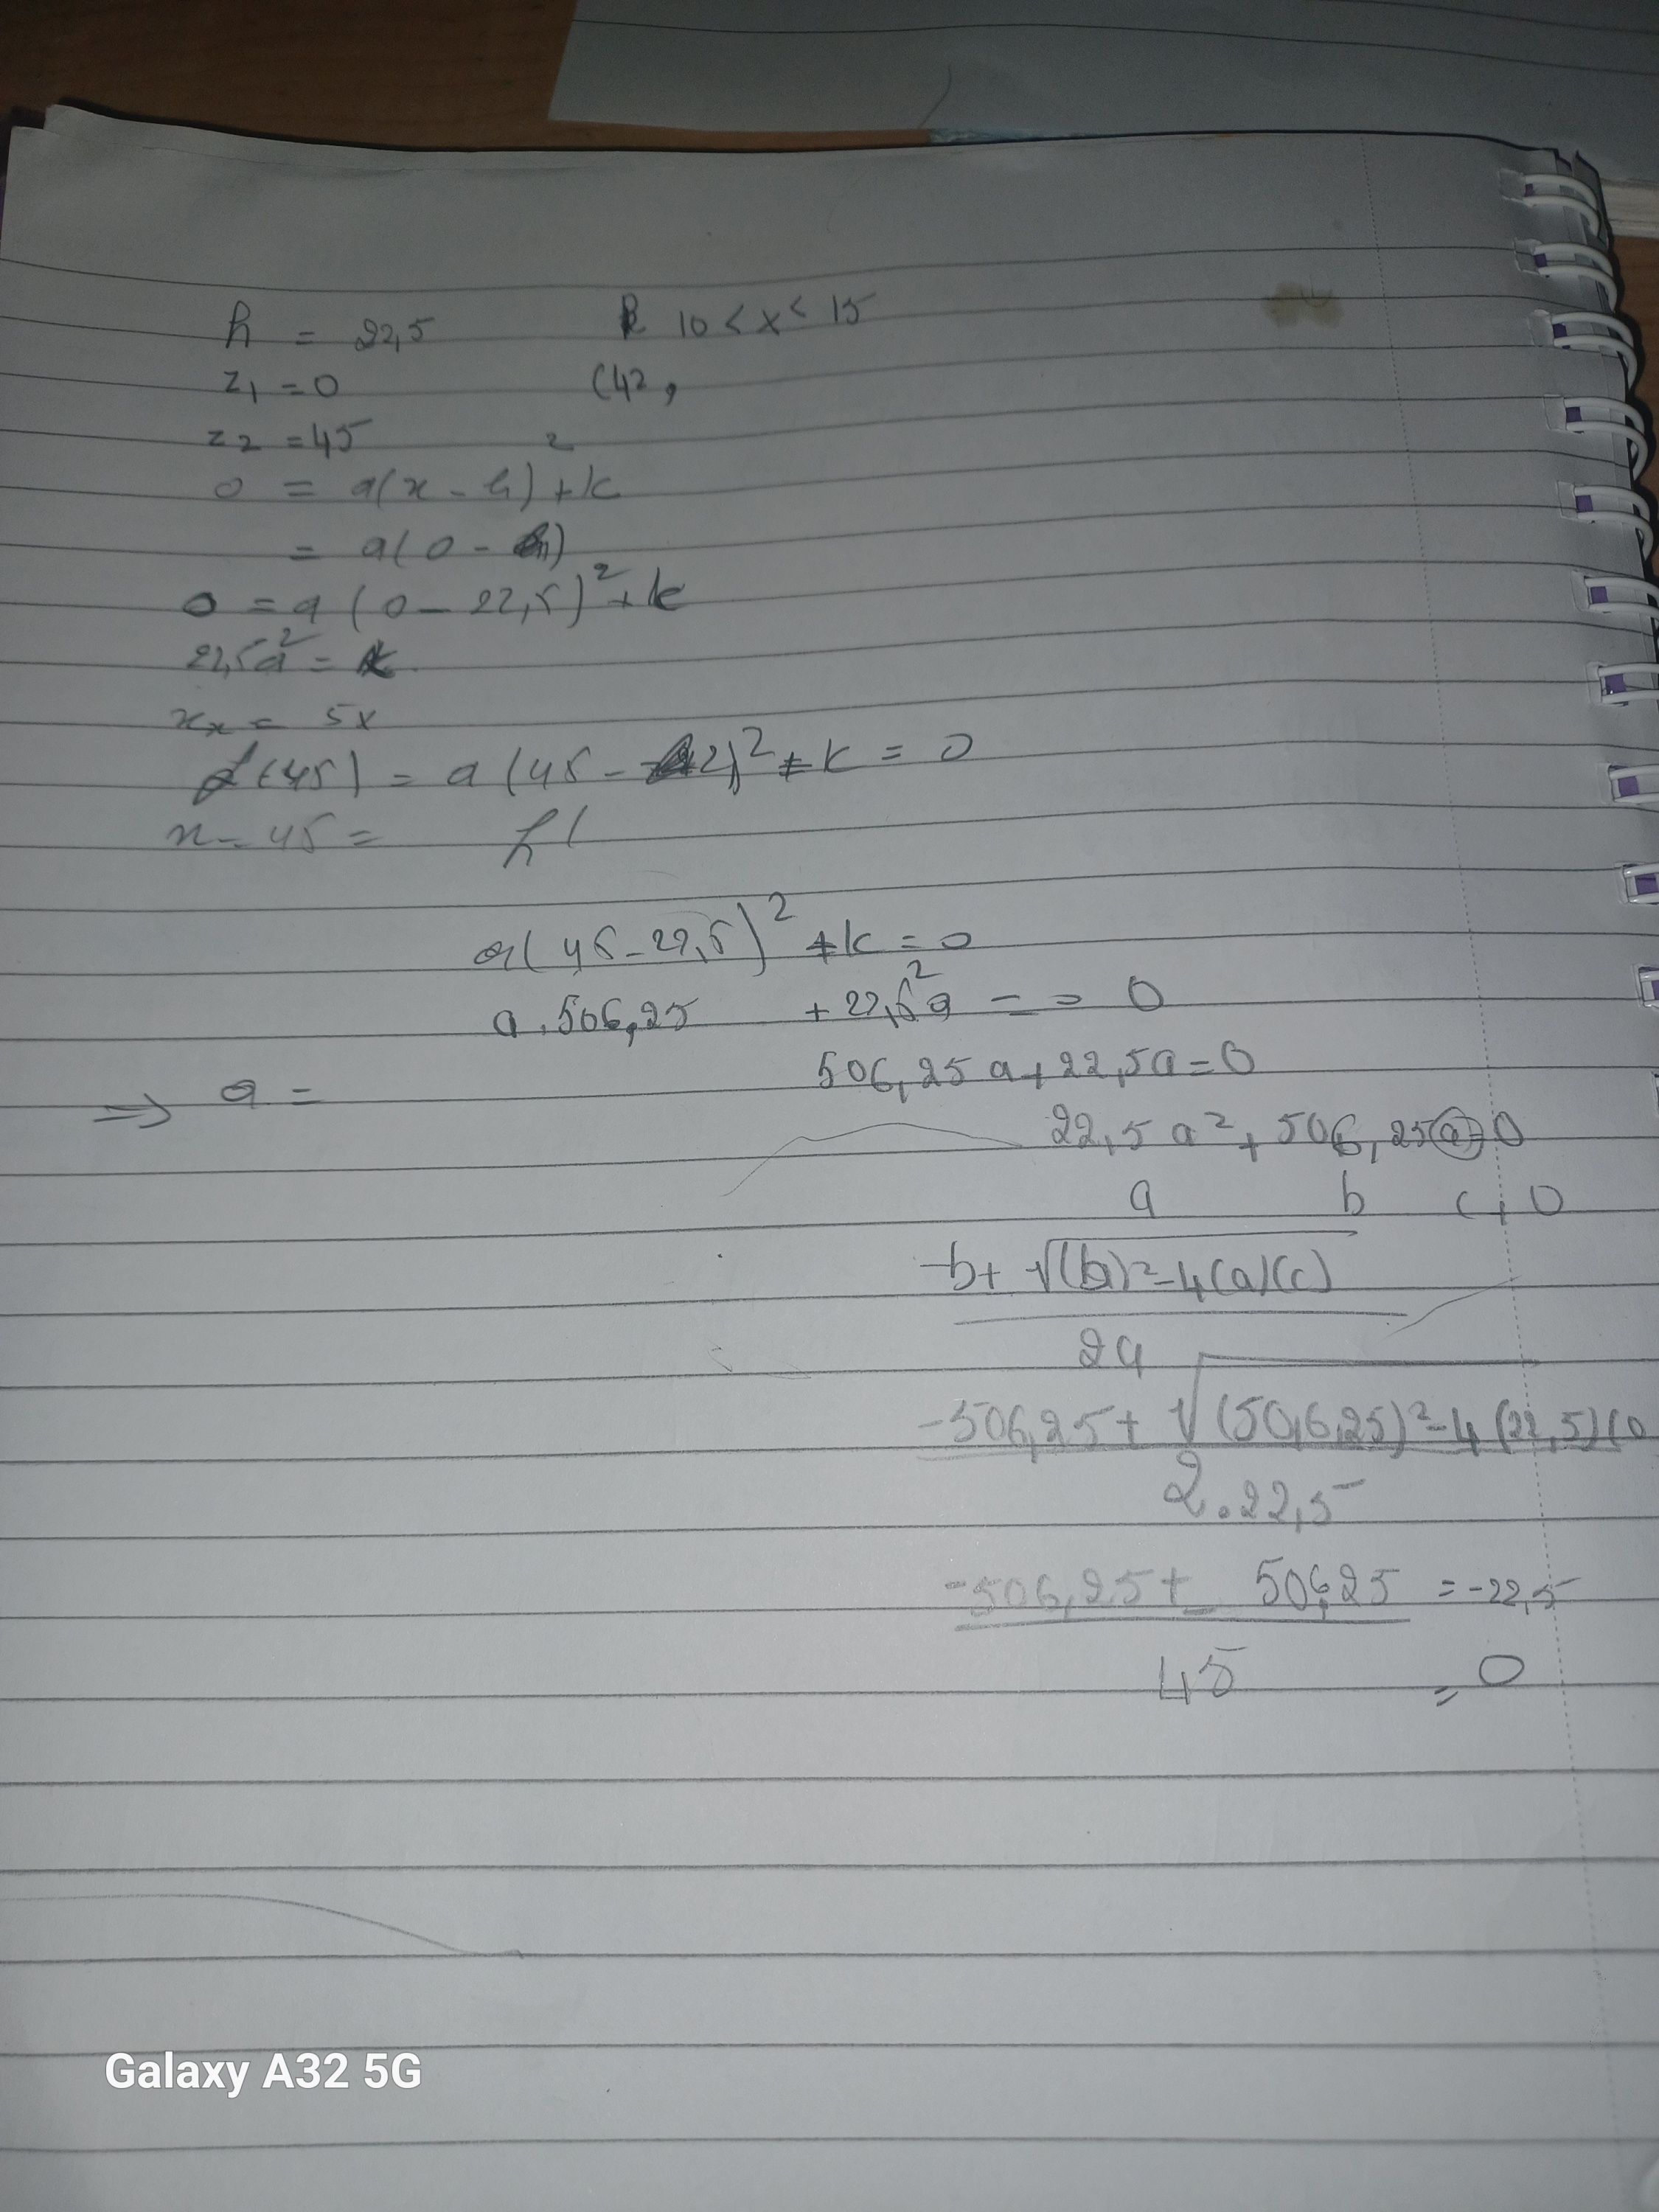 h = 22,5
k 10 < x < 15
z1 = 0
(42,
z2 = 45
0 = a(x - h)² + k
= a(0 -
0 = a(0 - 22,5)² + k
22,5a² = k
= 5x
f(45) = a(45 - 2)² + k = 0
x - 45 = f(
a(45 - 22,5)² + k = 0
a . 506,25 + 22,5²a = = 0
506,25a + 22,5a = 0
⇒ a =
22,5a² + 506,25a = 0
a b c, 0
-b + √(b)² - 4(a)(c)
2a
-506,25 + √(50,6,25)² - 4(22,5)(0
2.22,5
-506,25 ± 506,25 = -22,5
45 = 0
Galaxy A32 5G